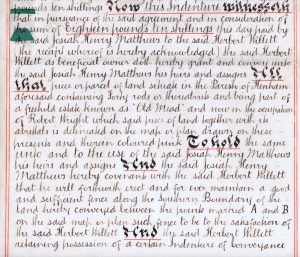 pounds ten shillings Now this Indenture witnesseth
that in pursuance of the said agreement and in consideration of
the sum of Eighteen pounds ten shillings this day paid by
the said Josiah Henry Matthews to the said Herbert Willett
(the receipt whereof is hereby acknowledged) the said Herbert
Willett as beneficial owner doth hereby grant and convey unto
the said Josiah Henry Matthews his heirs and assigns All
that piece or parcel of land situate in the Parish of Henham
aforesaid containing forty rods or thereabouts and being part of
a freehold field known as 'Old Mead' and now in the occupation
of Robert Wright which said piece of land together with its
abuttals is delineated on the map or plan drawn on these
presents and therein coloured pink To hold the same
unto and to the use of the said Josiah Henry Matthews
his heirs and assigns And the said Josiah Henry
Matthews hereby covenants with the said Herbert Willett
that he will forthwith erect and for ever maintain a good
and sufficient fence along the Southern Boundary of the
land hereby conveyed between the points marked A and B
on the said map or plan such fence to be to the satisfaction
of the said Herbert Willett And the said Herbert Willett
retaining possession of a certain Indenture of conveyance